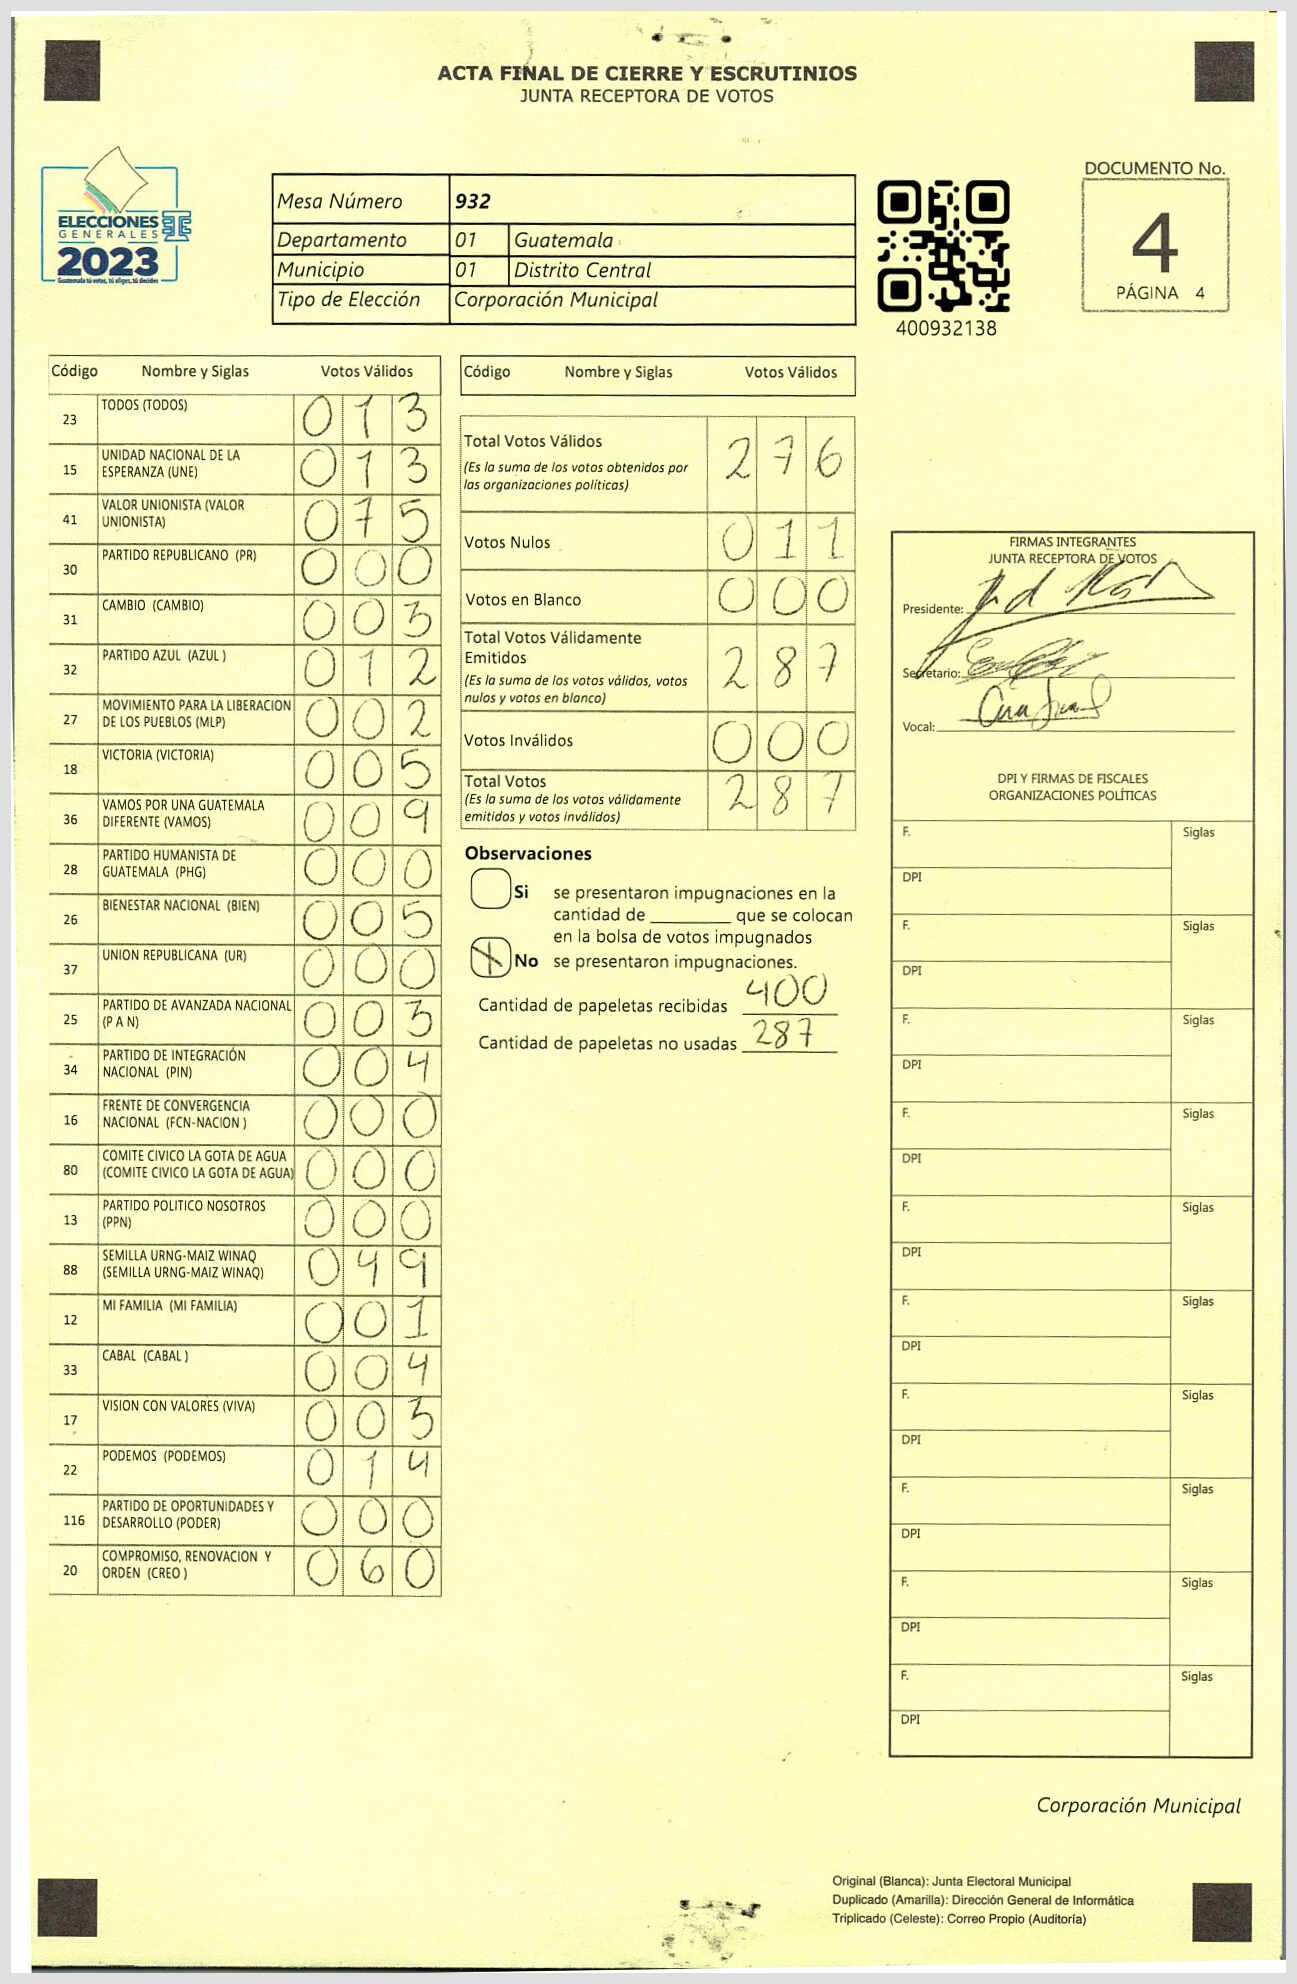 ACTA FINAL DE CIERRE Y ESCRUTINIOS
JUNTA RECEPTORA DE VOTOS
ELECCIONES
GENERALES
2023
Guatemala tú votas, tú eliges, tú decides
Mesa Número 932
Departamento 01 Guatemala
Municipio 01 Distrito Central
Tipo de Elección Corporación Municipal
400932138
DOCUMENTO No.
4
PÁGINA 4
Código Nombre y Siglas Votos Válidos
23 TODOS (TODOS) 0 1 3
15 UNIDAD NACIONAL DE LA
ESPERANZA (UNE) 0 1 3
41 VALOR UNIONISTA (VALOR
UNIONISTA) 0 7 5
30 PARTIDO REPUBLICANO (PR) 0 0 0
31 CAMBIO (CAMBIO) 0 0 3
32 PARTIDO AZUL (AZUL ) 0 1 2
27 MOVIMIENTO PARA LA LIBERACION
DE LOS PUEBLOS (MLP) 0 0 2
18 VICTORIA (VICTORIA) 0 0 5
36 VAMOS POR UNA GUATEMALA
DIFERENTE (VAMOS) 0 0 9
28 PARTIDO HUMANISTA DE
GUATEMALA (PHG) 0 0 0
26 BIENESTAR NACIONAL (BIEN) 0 0 5
37 UNION REPUBLICANA (UR) 0 0 0
25 PARTIDO DE AVANZADA NACIONAL
(P A N) 0 0 3
34 PARTIDO DE INTEGRACIÓN
NACIONAL (PIN) 0 0 4
16 FRENTE DE CONVERGENCIA
NACIONAL (FCN-NACION ) 0 0 0
80 COMITE CIVICO LA GOTA DE AGUA
(COMITE CIVICO LA GOTA DE AGUA) 0 0 0
13 PARTIDO POLITICO NOSOTROS
(PPN) 0 0 0
88 SEMILLA URNG-MAIZ WINAQ
(SEMILLA URNG-MAIZ WINAQ) 0 4 9
12 MI FAMILIA (MI FAMILIA) 0 0 1
33 CABAL (CABAL ) 0 0 4
17 VISION CON VALORES (VIVA) 0 0 3
22 PODEMOS (PODEMOS) 0 1 4
116 PARTIDO DE OPORTUNIDADES Y
DESARROLLO (PODER) 0 0 0
20 COMPROMISO, RENOVACION Y
ORDEN (CREO ) 0 6 0
Código Nombre y Siglas Votos Válidos
Total Votos Válidos 2 7 6
(Es la suma de los votos obtenidos por
las organizaciones políticas)
Votos Nulos 0 1 1
Votos en Blanco 0 0 0
Total Votos Válidamente
Emitidos 2 8 7
(Es la suma de los votos válidos, votos
nulos y votos en blanco)
Votos Inválidos 0 0 0
Total Votos 2 8 7
(Es la suma de los votos válidamente
emitidos y votos inválidos)
Observaciones
Si se presentaron impugnaciones en la
cantidad de ________ que se colocan
en la bolsa de votos impugnados
No se presentaron impugnaciones.
Cantidad de papeletas recibidas 400
Cantidad de papeletas no usadas 287
FIRMAS INTEGRANTES
JUNTA RECEPTORA DE VOTOS
Presidente:
Secretario:
Vocal:
DPI Y FIRMAS DE FISCALES
ORGANIZACIONES POLÍTICAS
F. Siglas
DPI
F. Siglas
DPI
F. Siglas
DPI
F. Siglas
DPI
F. Siglas
DPI
F. Siglas
DPI
F. Siglas
DPI
F. Siglas
DPI
F. Siglas
DPI
F. Siglas
DPI
Corporación Municipal
Original (Blanca): Junta Electoral Municipal
Duplicado (Amarilla): Dirección General de Informática
Triplicado (Celeste): Correo Propio (Auditoría)